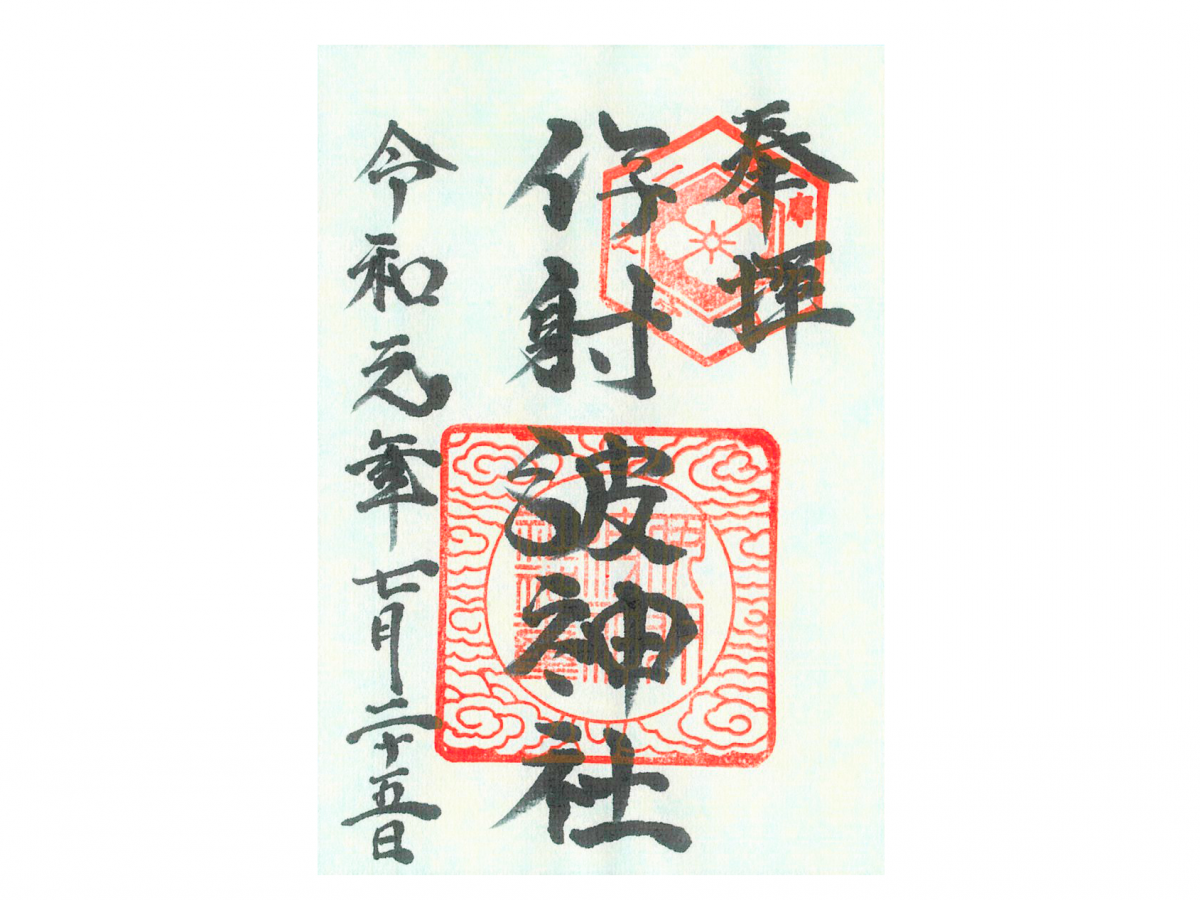 奉拝
伊射波神社
令和元年七月二十五日